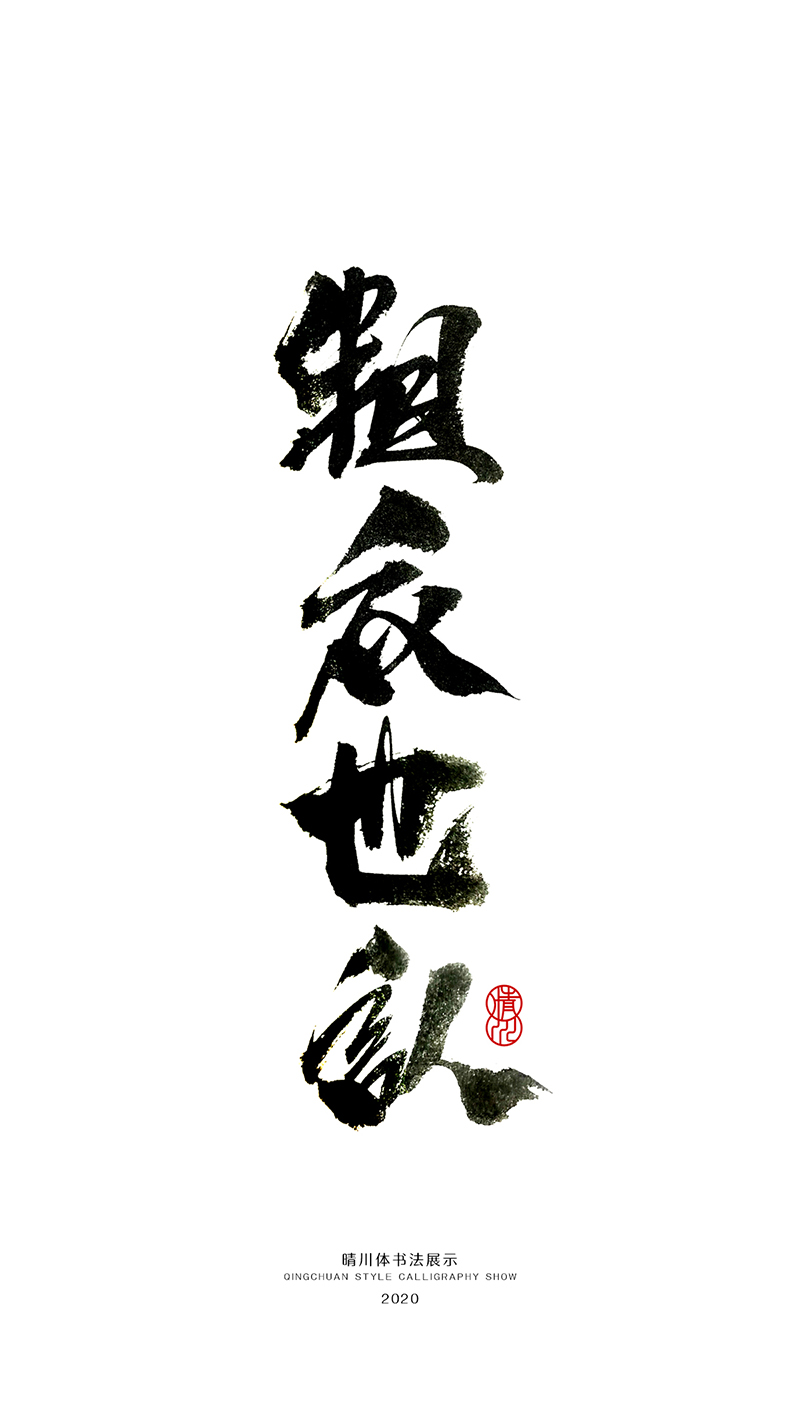 粗
衣
也
晴川
晴川体书法展示
QINGCHUAN STYLE CALLIGRAPHY SHOW
2020